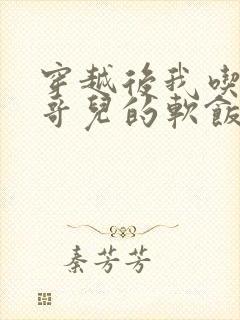 穿越後我喫
哥兒的軟飯
秦芳芳